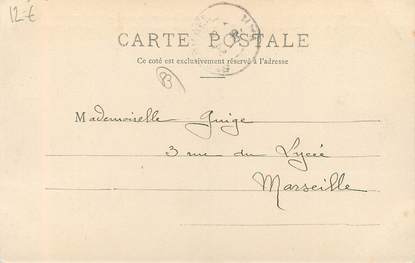 12-€
CARTE POSTALE
Ce coté est exclusivement réservé à l'adresse
83
Mademoiselle Guige
3 rue du Lycée
Marseille